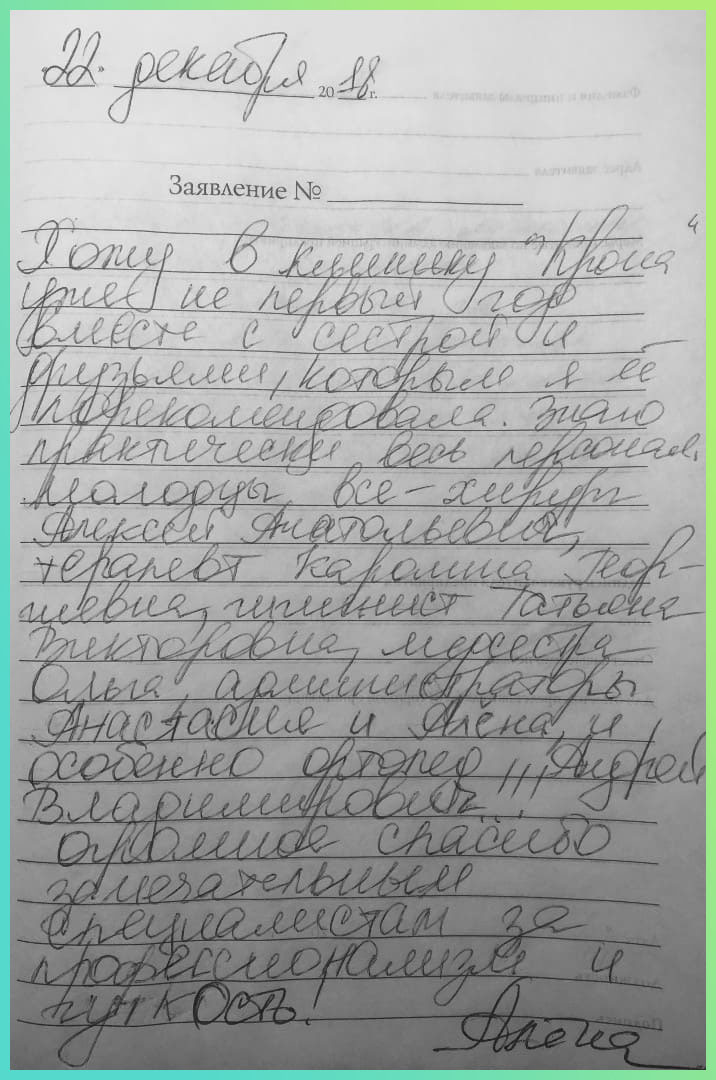 «22» декабря 2018 г.
Заявление № 
Хожу в клинику "Крона"
уже не первый год
вместе с сестрой и
друзьями, которым я её
порекомендовала. Знаю
практически весь персонал.
Молодцы все - хирург
Алексей Анатольевич,
терапевт Каролина Геор-
гиевна, гигиенист Татьяна
Викторовна, медсестра
Ольга, администраторы
Анастасия и Алёна, и
особенно ортопед Андрей
Владимирович!!!
Огромное спасибо
замечательным
специалистам за
профессионализм и
чуткость!
Алёна